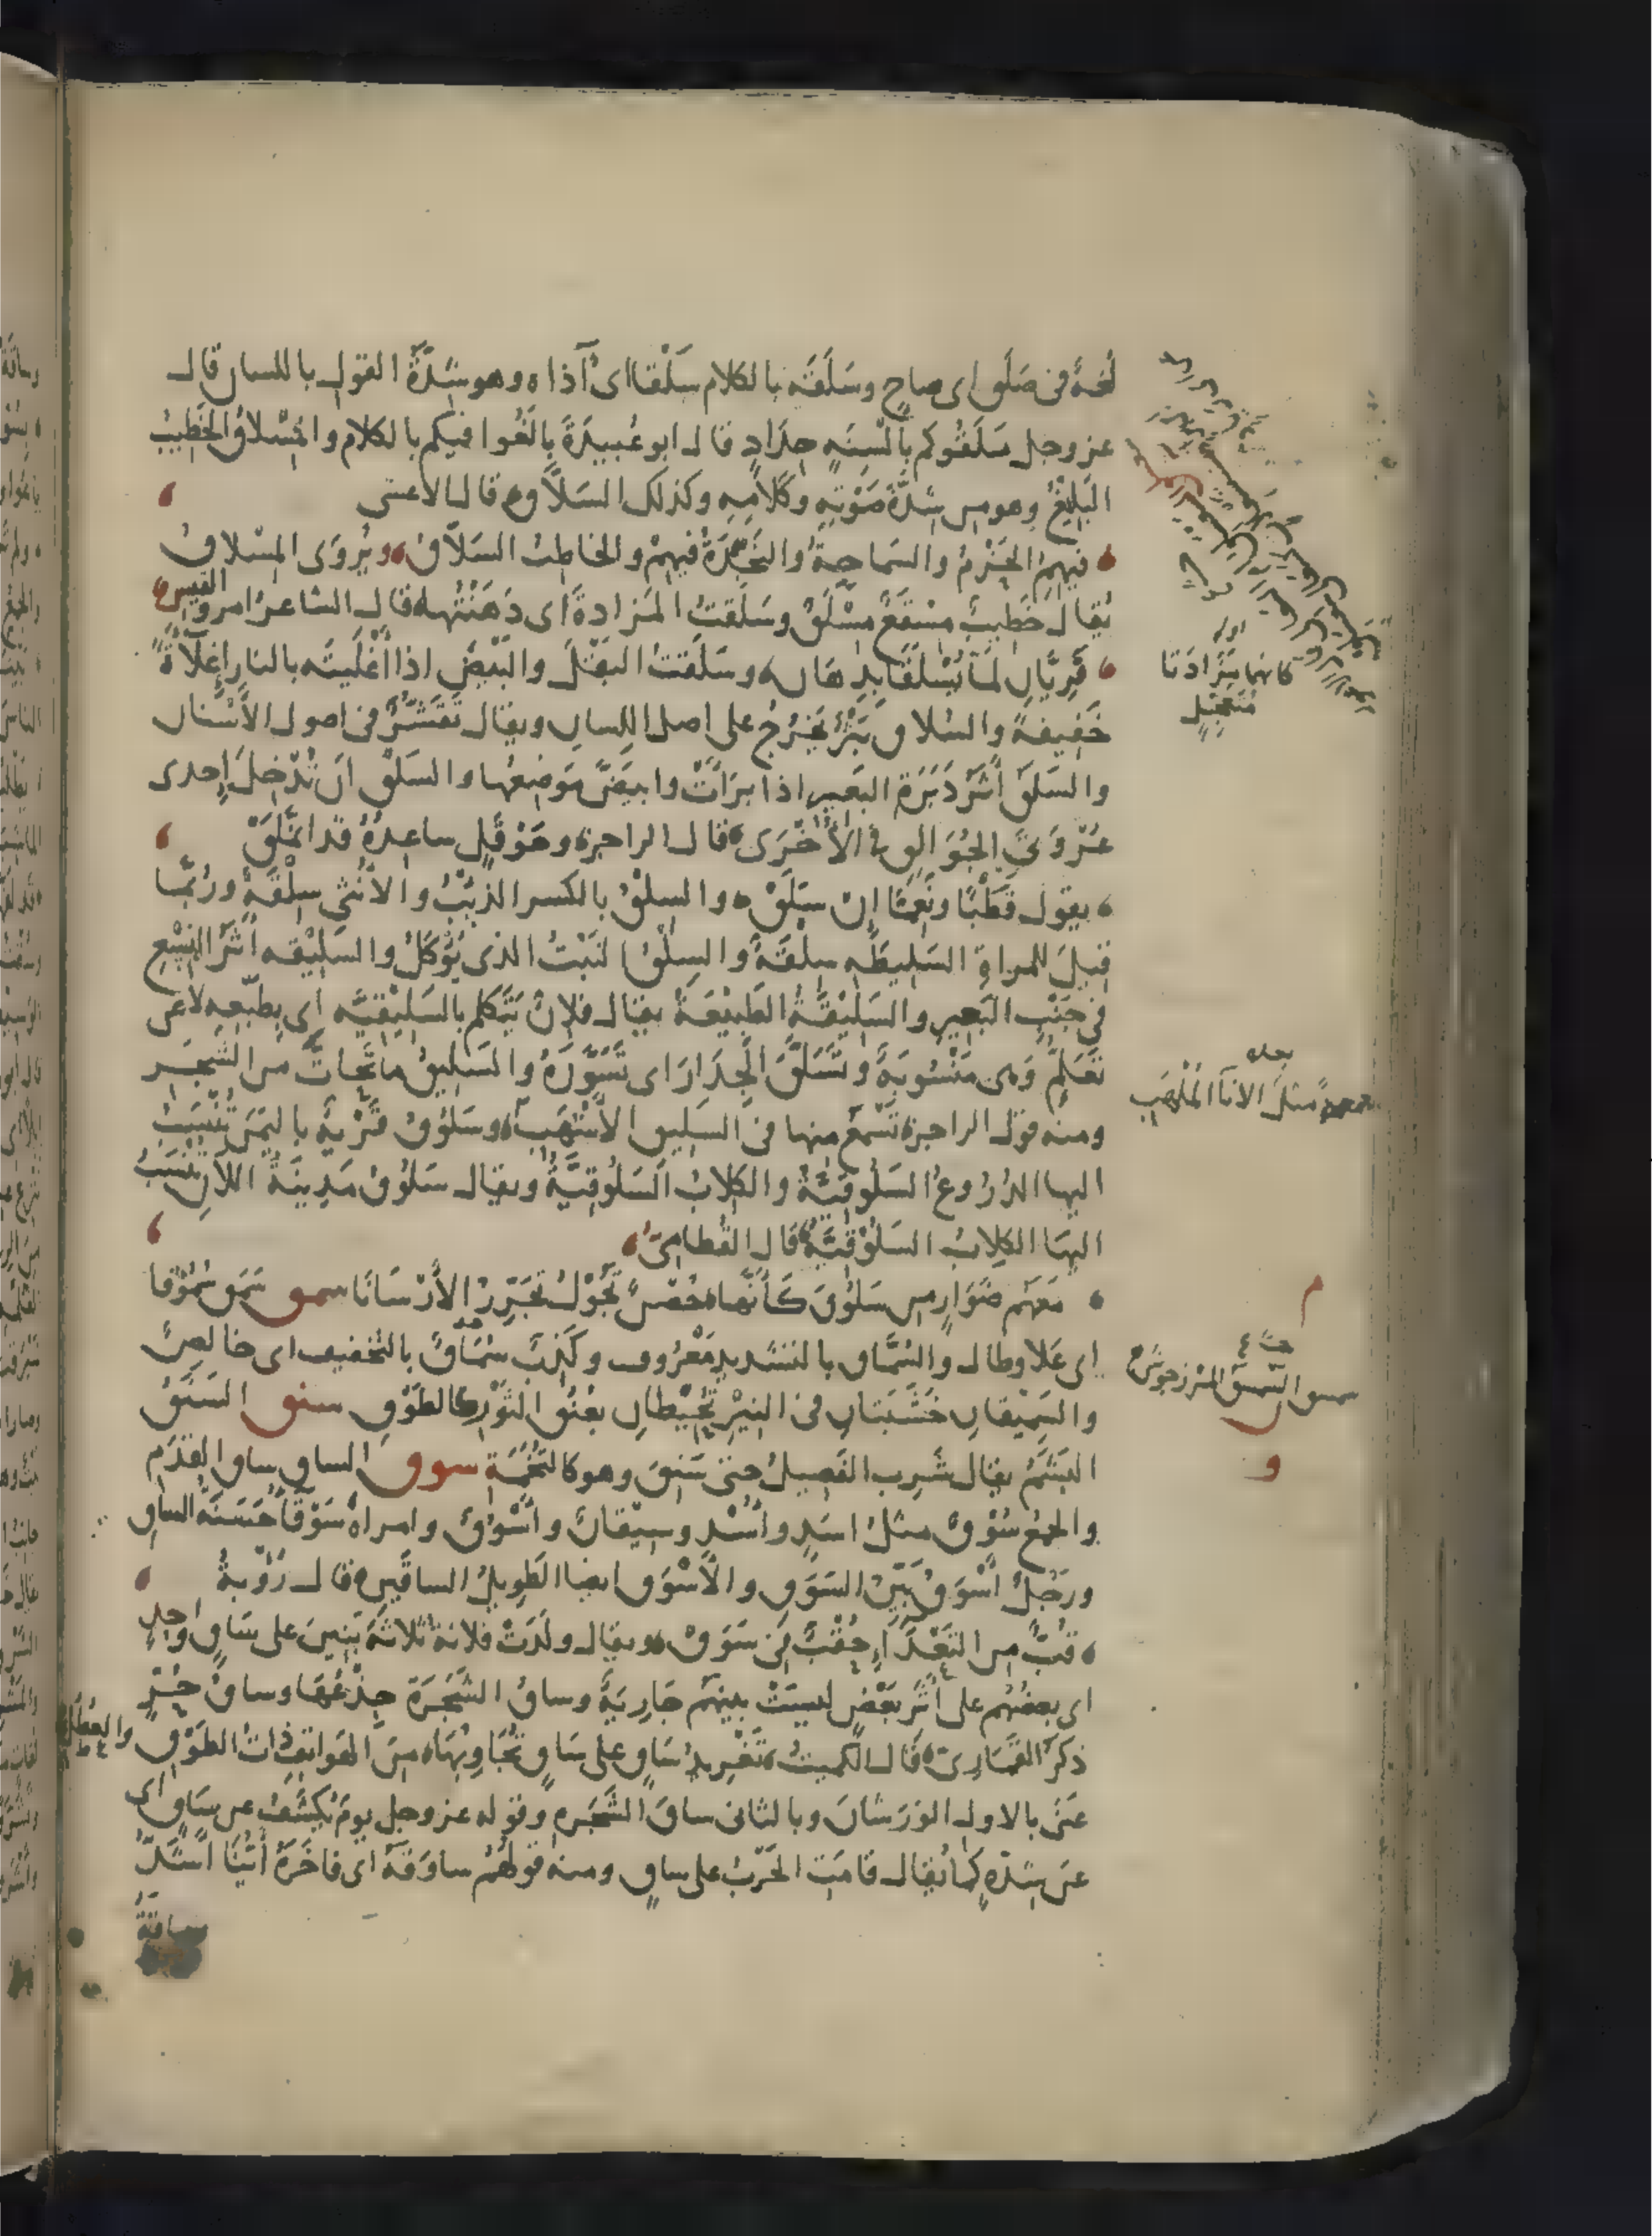 لُغةٌ فى صَلَق اى صاح وسَلَقَه بالكلام سَلْقًا اى آذاه وهو شِدّةُ القول باللسان قال
عز وجل سَلَقُوكم بألْسِنَةٍ حِدَادٍ قال ابو عُبيدَةَ بالَغُوا فيكم بالكلام والمِسْلاقُ الخَطِيبُ
البَلِيْغُ وهو من شِدَّةِ صَوْتِهِ وكَلامِهِ وكذلك السَلاَّق قال الاعشى
فيهِمُ الحَزْمُ والسَماحةُ والنَجْدَةُ فيهِمْ والخاطِبُ السَلاَّقُ ويُروَى المِسْلاقُ
يُقال خَطِيبٌ مِسْقَعٌ مِسْلَقٌ وسَلَقتُ المَزادةَ اى دَهَنْتُها قال الشاعر امرؤ القيس
فَرِيَّانِ لَمَّا تُسْلَقَا بِدِهَانِ وسَلَقتُ البَقْلَ والبَيْضَ اذا أَغْلَيتَه بالنار إغلاءةً
خَفِيفةً والسُلاق بَثْرٌ يَخرُجُ على اصل اللسان ويقال تَقَشُّرٌ فى اصول الأَسْنان
والسَلَق أَثَرُ دَبَرَةِ البَعير اذا بَرَأَتْ وابيَضَّ مَوضِعُها والسَلْق ان تُدْخِلَ إحدى
عُرْوَتَيِ الجُوَالِقِ فى الأُخْرَى قال الراجز وحَوْقَلٍ ساعِدُهُ قد انمَلَقْ
يقول قَطْبًا ونِعِمَّا إن سَلَقْ والسِلْقُ بالكسر الذِئبُ والأُنثى سِلْقَةٌ ورُبَّما
قيلَ للمراةِ السَلِيطَه سِلْقَةٌ والسِلْقُ النَبْتُ الذى يُؤكَلُ والسَلِيْقه أَثَرُ النِسْعِ
فى جَنْبِ البَعيرِ والسَلِيْقَةُ الطَبِيْعَةُ يقال فلانٌ يَتَكلم بالسَلِيْقيَّه اى بطَبْعِه لا عن
تَعَلُّمٍ وهى مَنْسُوبَةٌ وتَسَلَّقَ الجِدَارَ اى تَسَوَّرَهُ والسَلِيقُ ما تَحَاتَّ من الشَجَر
ومنه قول الراجز تَسْمَعُ منها فى السَلِيق الأَشْهَبِ وسَلُوق قَرْيَةٌ باليَمَن تُنْسَبُ
اليها الدُرُوعُ السَلُوقيَّةُ والكِلابُ السَلُوقِيَّةُ ويقال سَلُوقُ مَدِينَةُ اللاَّنِ تُنْسَبُ
اليهَا الكِلابُ السَلُوقيَّةُ قال القُطامِىُّ
مَعَهم ضَوَارٍ من سَلُوقَ كَأَنَّها حُصُنٌ تَجُوْلُ تُجَرِّرُ الأَرْسَانَا سمق سَمَق سُمُوْقا
اى عَلا وطال والسُمَّاق بالتشديدِ مَعْرُوف وكَذِبٌ سُمَاقٌ بالتخفيف اى خالِصٌ
والسَمِيْقانِ خَشَبَتانِ فى النِيْرِ تُحِيْطانِ بعُنُق الثَوْرِ كالطَوْقِ سنق السَنَقُ
البَشَمُ يقال شَرِبَ الفَصِيلُ حتى سَنِقَ وهو كالتُخَمَةِ سوق الساق ساق القَدَم
والجمعُ سُوْقٌ مثلُ اسَدٍ وأُسْدٍ وسِيْقانٌ وأَسْوُقٌ وامراةٌ سَوْقَاءُ حَسَنَةُ الساقِ
ورَجُلٌ أَسْوَقُ بَيِّنُ السَوَقِ والأَسْوَق ايضا الطَوِيلُ الساقَينِ قال رُؤْبةُ
قُبٌّ من التَعْدَاءِ حُقْبٌ فى سَوَقْ ويقال ولَدَتْ فلانةُ ثَلاثَةَ بَنِينَ على سَاقٍ واحدٍ
اى بعضُهُم على أَثَرِ بَعْضٍ ليسَتْ بينهم جَارِيَةٌ وساقُ الشَجَرَةِ جِذْعُهَا وساقُ حُرٍّ
ذكَرُ القَمَارِىّ قال الكميتُ تَغْرِيدُ سَاقٍ على سَاقٍ تُجَاوِبُهَا من الهَوَاتِفِ ذاتُ الطَوْقِ والعُطُلُ
عَنَى بالاول الوَرَشانَ وبالثانى ساقَ الشَجَرهِ وقوله عز وجل يومَ يُكشَفُ عن سَاقٍ اى
عَن شِدّهٍ كما يُقال قامَتِ الحَرْبُ على ساقٍ ومنه قولهُم ساوَقَهُ اى فاخَرَهُ أَيُّنَا أَشَدُّ
ساقةُ
كانهما مَزَادَتا
مُتَعَجِّلٍ
بعده
مَعْمَعَةً مثلَ الاباءِ المُلْهَبِ
م
سمسق السَمسَق المَرْزَجوش
و